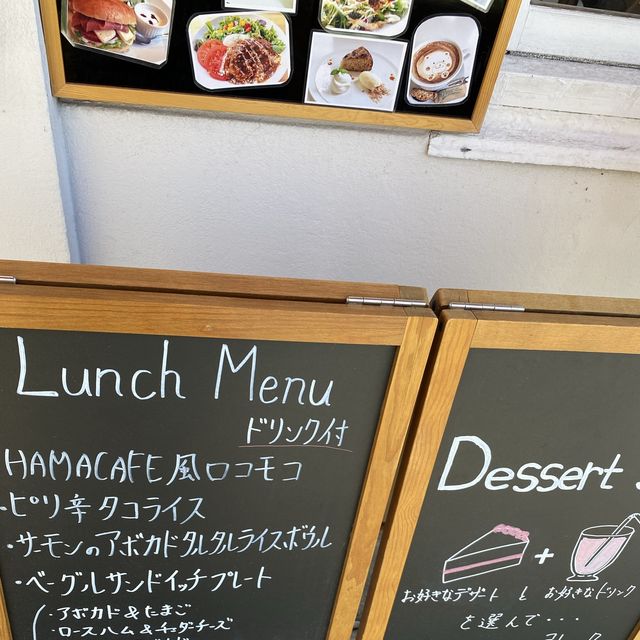 Lunch Menu
ドリンク付
HAMACAFE風ロコモコ
・ピリ辛タコライス
・サーモンのアボカドタルタルライスボウル
・ベーグルサンドイッチプレート
・アボカド&たまご
・ロースハム&チェダーチーズ
Dessert
+
お好きなデザート と お好きなドリンク
を選んで・・・